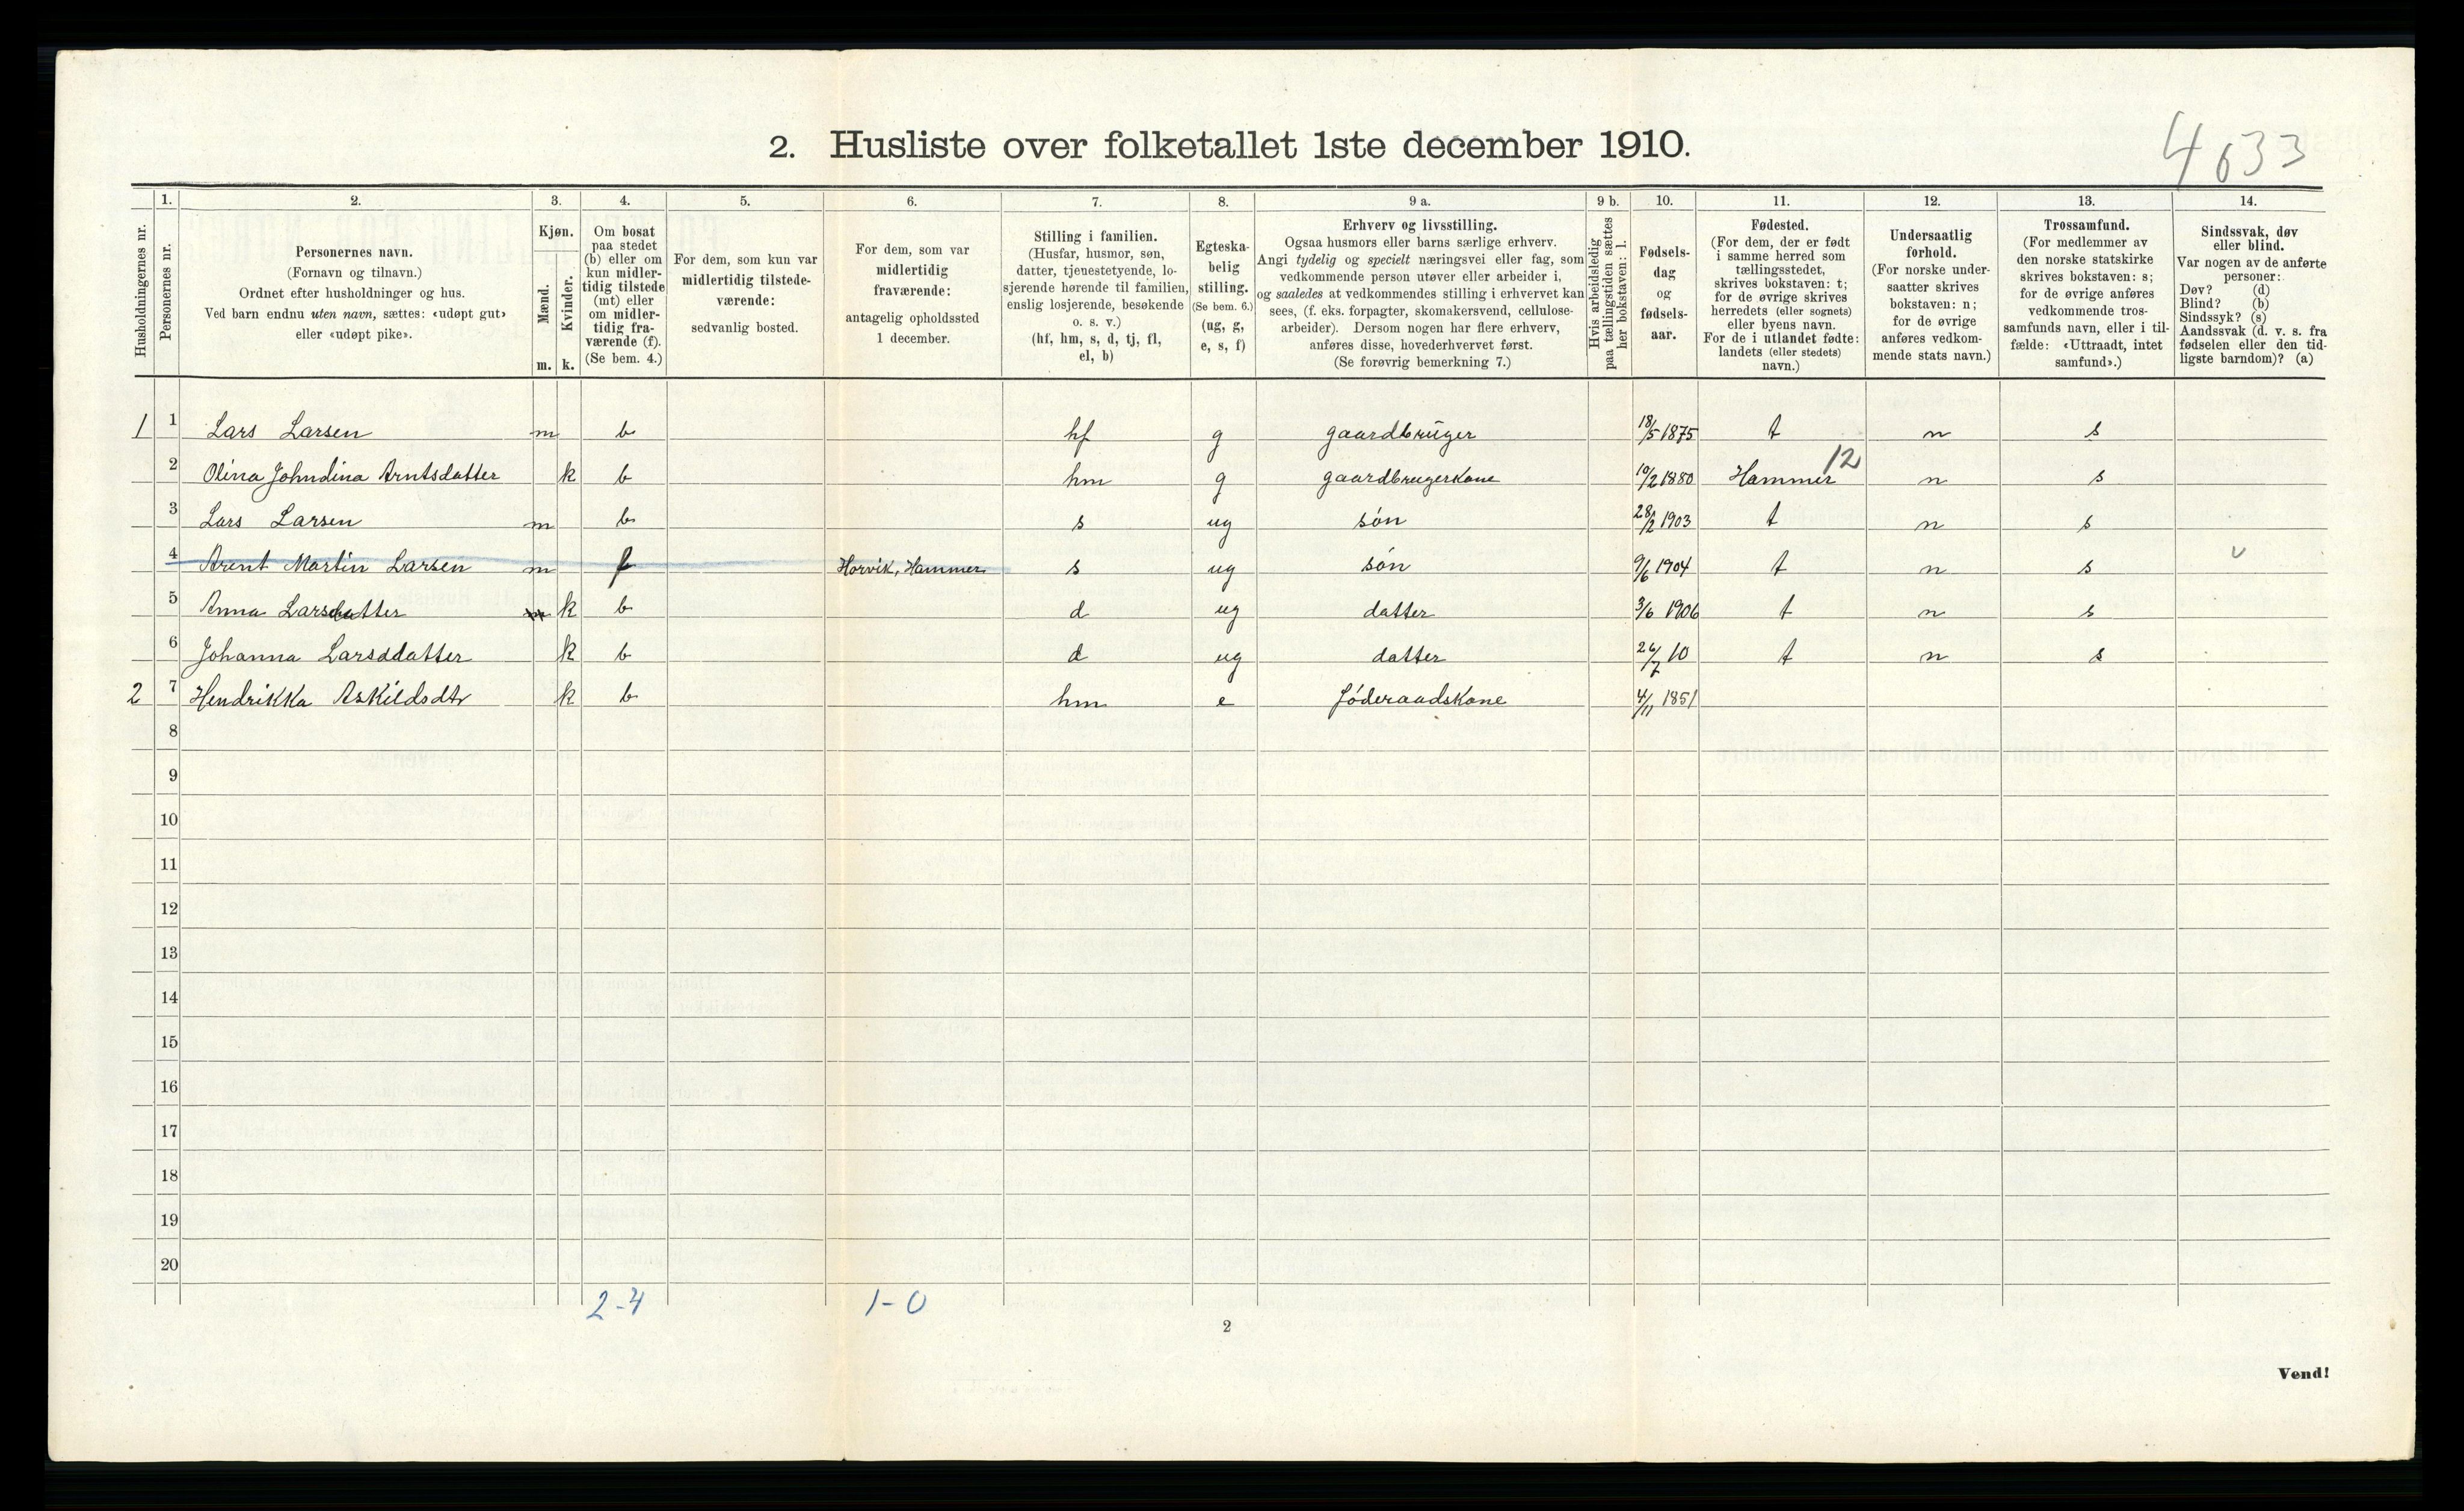 2. Husliste over folketallet 1ste december 1910.
4633
1. 2. 3. 4. 5. 6. 7. 8. 9 a. 9 b. 10. 11. 12. 13. 14.
Husholdningernes nr.
Personernes nr.
Personernes navn.
(Fornavn og tilnavn.)
Ordnet efter husholdninger og hus.
Ved barn endnu uten navn, sættes: «udøpt gut»
eller «udøpt pike».
Kjøn.
Mænd.
Kvinder.
m. k.
Om bosat
paa stedet
(b) eller om
kun midler-
tidig tilstede
(mt) eller
om midler-
tidig fra-
værende (f).
(Se bem. 4.)
For dem, som kun var
midlertidig tilstede-
værende:
sedvanlig bosted.
For dem, som var
midlertidig
fraværende:
antagelig opholdssted
1 december.
Stilling i familien.
(Husfar, husmor, søn,
datter, tjenestetyende, lo-
sjerende hørende til familien,
enslig losjerende, besøkende
o. s. v.)
(hf, hm, s, d, tj, fl,
el, b)
Egteska-
belig
stilling.
(Se bem. 6.)
(ug, g,
e, s, f)
Erhverv og livsstilling.
Ogsaa husmors eller barns særlige erhverv.
Angi tydelig og specielt næringsvei eller fag, som
vedkommende person utøver eller arbeider i,
og saaledes at vedkommendes stilling i erhvervet kan
sees, (f. eks. forpagter, skomakersvend, cellulose-
arbeider). Dersom nogen har flere erhverv,
anføres disse, hovederhvervet først.
(Se forøvrig bemerkning 7.)
Hvis arbeidsledig
paa tællingstiden sættes
her bokstaven: l.
Fødsels-
dag
og
fødsels-
aar.
Fødested.
(For dem, der er født
i samme herred som
tællingsstedet,
skrives bokstaven: t;
for de øvrige skrives
herredets (eller sognets)
eller byens navn.
For de i utlandet fødte:
landets (eller stedets)
navn.)
Undersaatlig
forhold.
(For norske under-
saatter skrives
bokstaven: n;
for de øvrige
anføres vedkom-
mende stats navn.)
Trossamfund.
(For medlemmer av
den norske statskirke
skrives bokstaven: s;
for de øvrige anføres
vedkommende tros-
samfunds navn, eller i til-
fælde: «Uttraadt, intet
samfund».)
Sindssvak, døv
eller blind.
Var nogen av de anførte
personer:
Døv? (d)
Blind? (b)
Sindssyk? (s)
Aandssvak (d. v. s. fra
fødselen eller den tid-
ligste barndom)? (a)
1 1 Lars Larsen m b hf g gaardbruger 18/5 1875 t n s
12
2 Olina Johndina Arntsdatter k b hm g gaardbrugerkone 10/2 1880 Hammer n s
3 Lars Larsen m b s ug søn 28/2 1903 t n s
4 Arent Martin Larsen m f Horvik, Hammer s ug søn 9/6 1904 t n s v
5 Anna Larsdatter m k b d ug datter 3/6 1906 t n s
6 Johanna Larsddatter k b d ug datter 26/7 10 t n s
2 7 Hendrikka Askildsdtr k b hm e føderaadskone 4/11 1851
8
9
10
11
12
13
14
15
16
17
18
19
20
2-4 1-0
2
Vend!